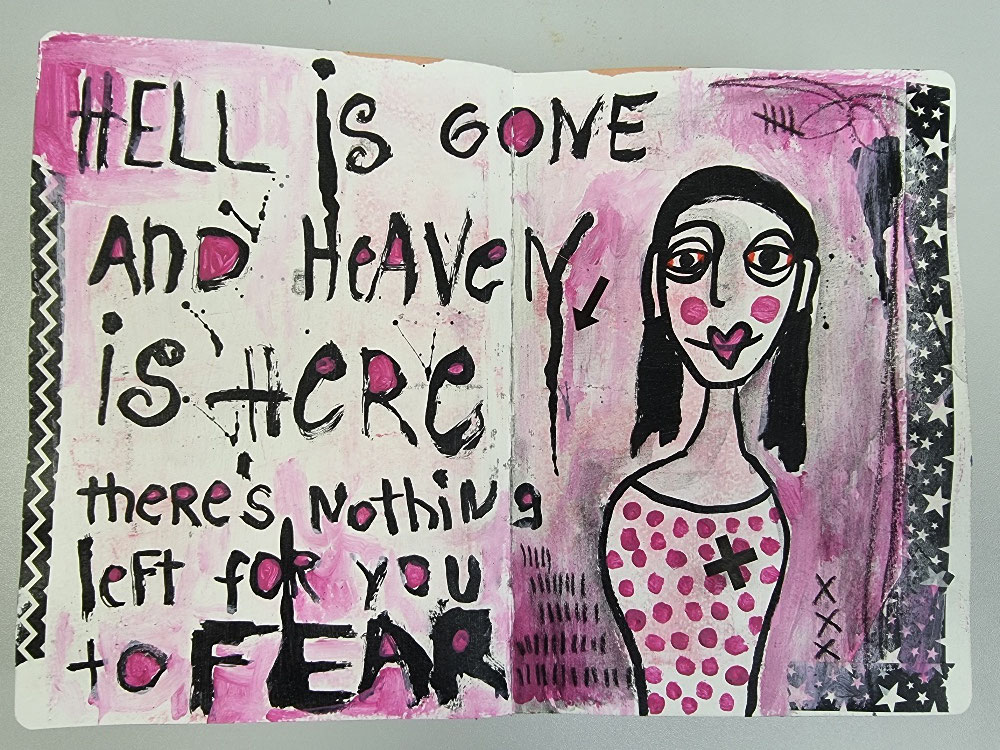 HELL iS GONE
AnD HeAVeN
iS HeRe
theRe's Nothing
left foR you
to FEAR
X
X
X